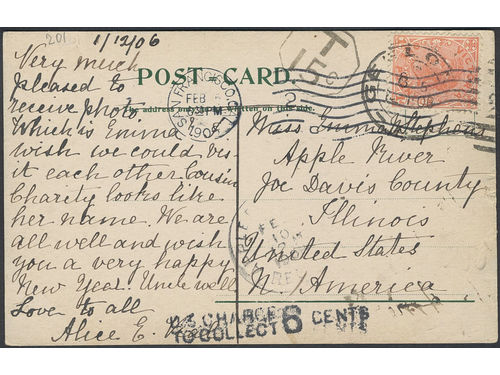 201
1/12/06
POST-CARD.
The address only to be written on this side.
Very much
pleased to
receive photo
Which is Emma
wish we could vis-
it each other Cousin
Charity looks like
her name. We are
all well and wish
you a very happy
New Year. Uncle well
Love to all
Alice E.
T
SAN FRANCISCO, CAL.
FEB
PM
1906
GEELONG
Miss Emma Stephens
Apple River
Joe Davis County
Illinois
United States
N. America
FE
10
REC'D
U.S. CHARGE
TO COLLECT 6 CENTS